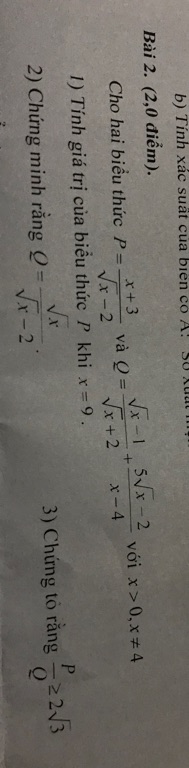 b) Tính xác suất của biến cố A:
Bài 2. (2,0 điểm).
Cho hai biểu thức P = \frac{x+3}{\sqrt{x}-2} và Q = \frac{\sqrt{x}-1}{\sqrt{x}+2} + \frac{5\sqrt{x}-2}{x-4} với x > 0, x ≠ 4
1) Tính giá trị của biểu thức P khi x = 9.
2) Chứng minh rằng Q = \frac{\sqrt{x}}{\sqrt{x}-2}.
3) Chứng tỏ rằng \frac{P}{Q} ≥ 2\sqrt{3}